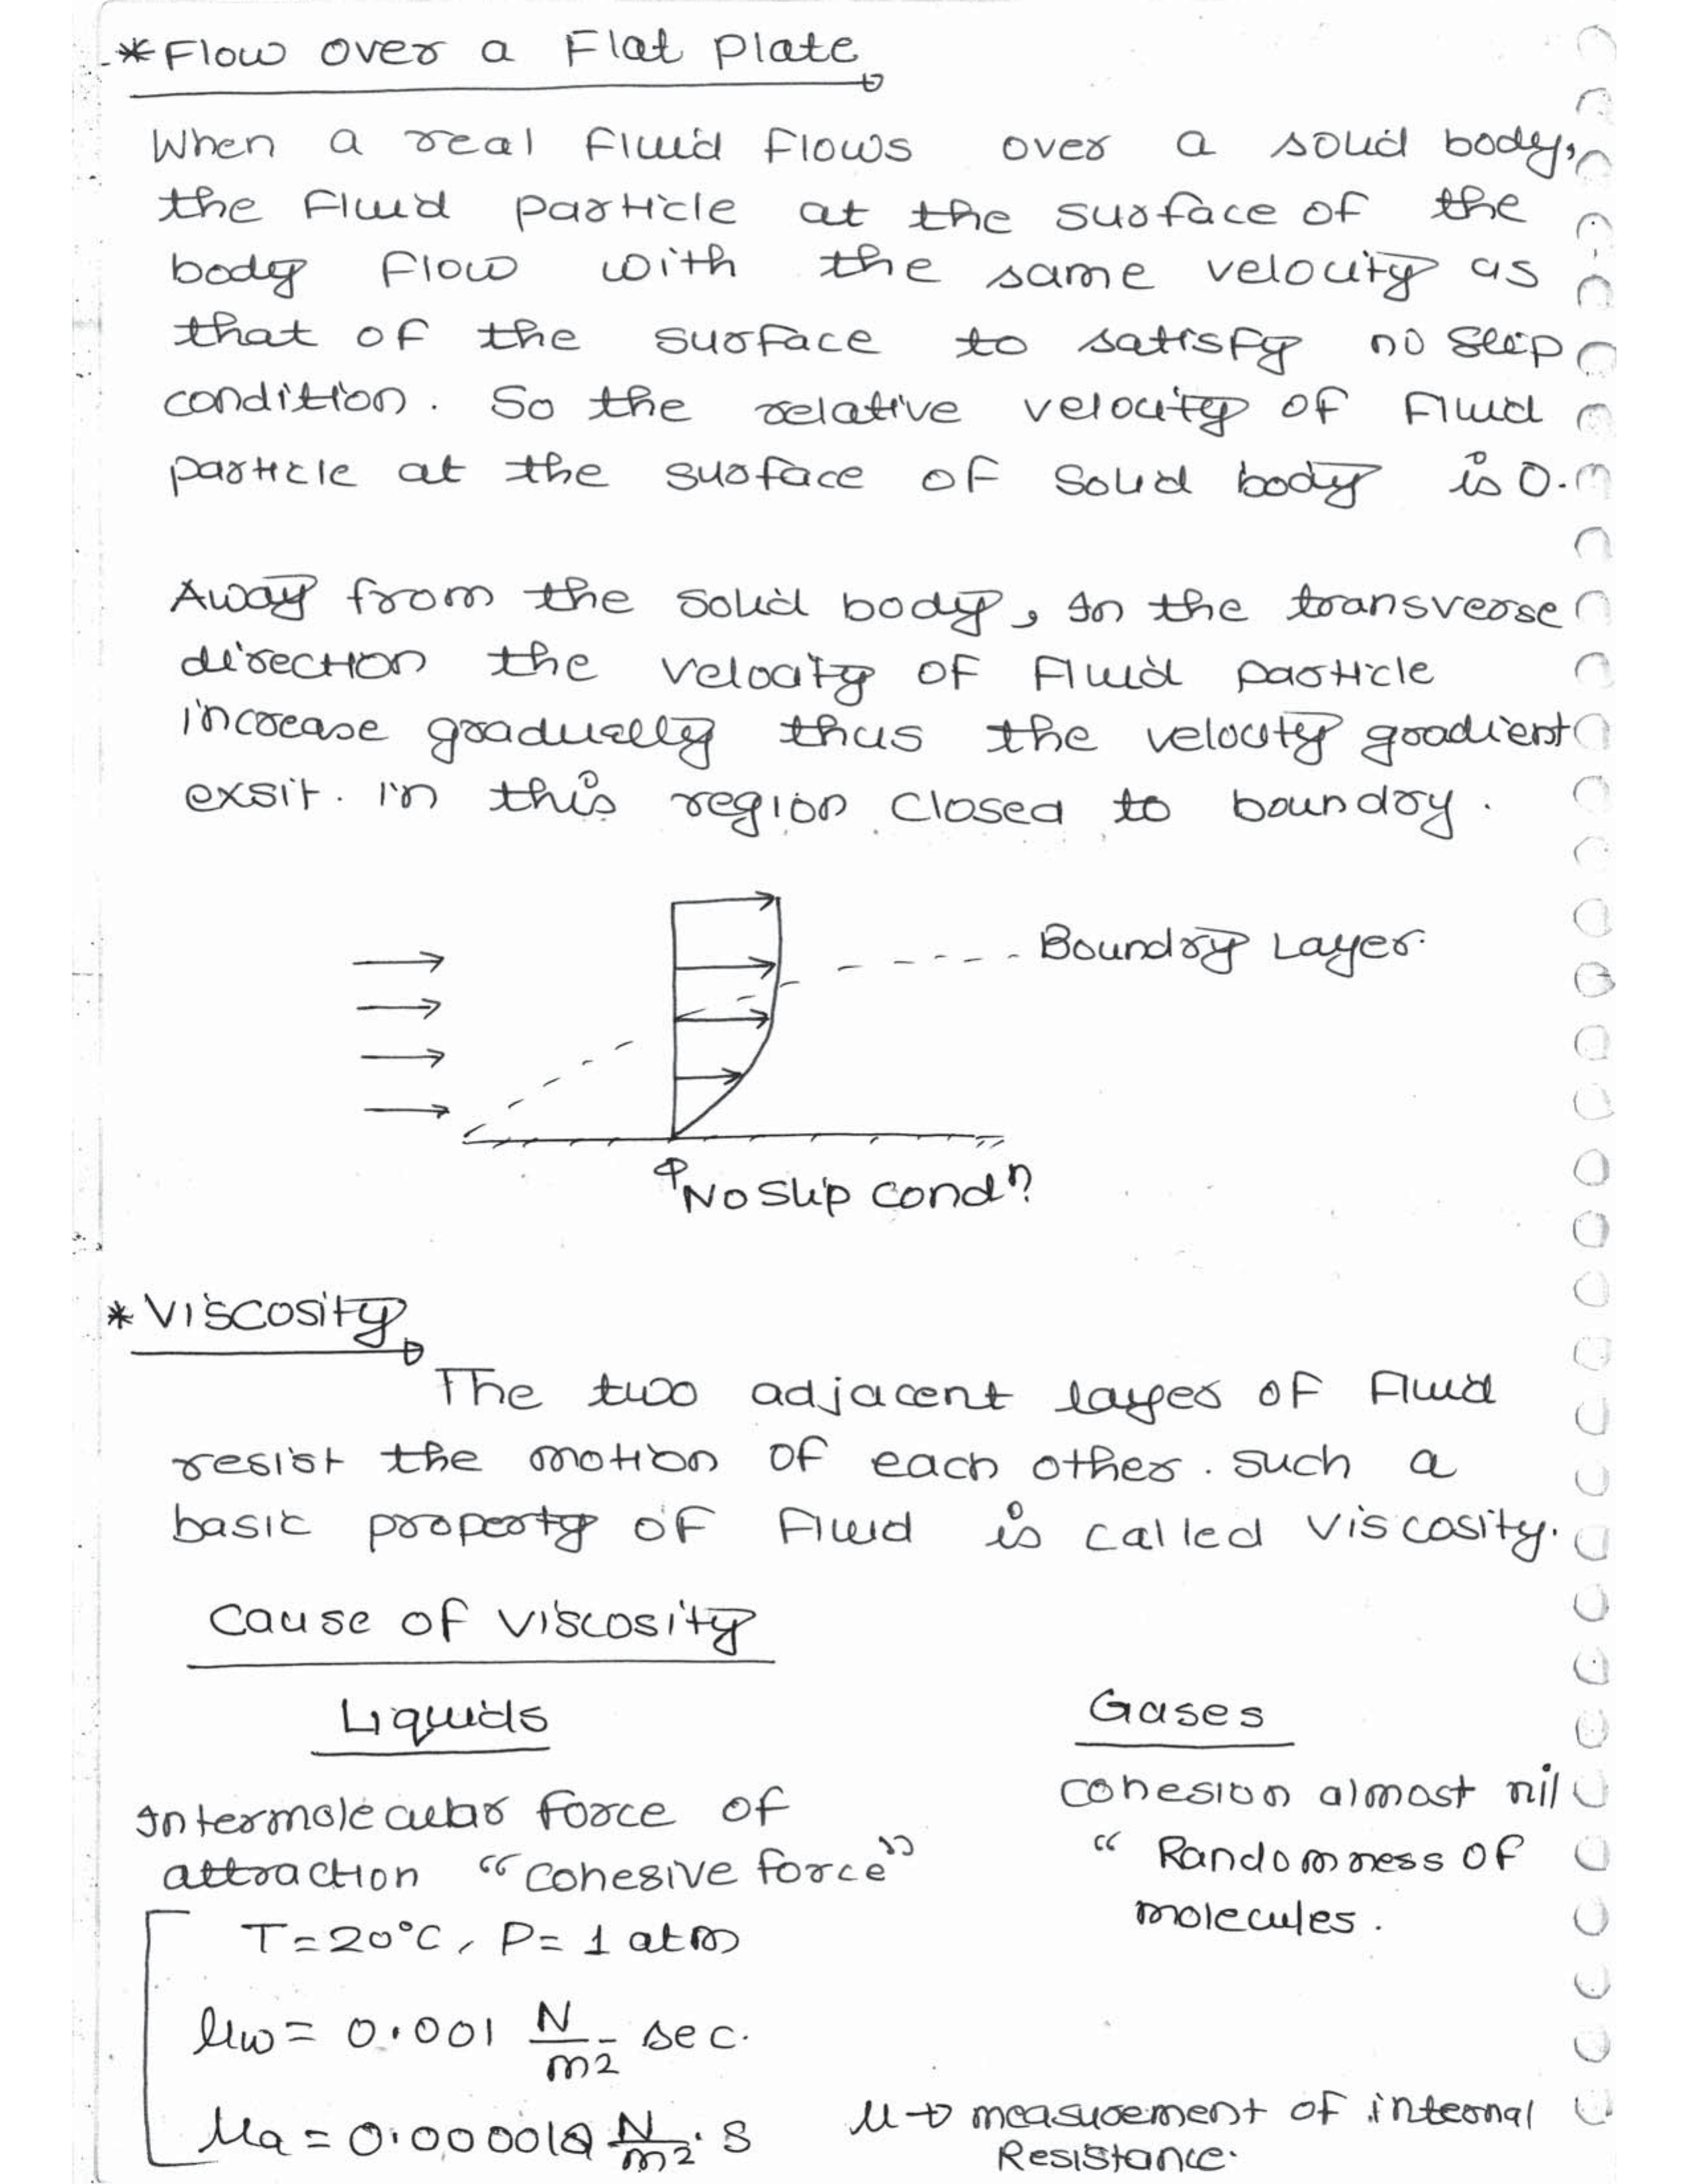 *Flow over a Flat Plate
When a real fluid flows over a solid body,
the fluid particle at the surface of the
body flow with the same velocity as
that of the surface to satisfy no slip
condition. So the relative velocity of fluid
particle at the surface of solid body is 0.
Away from the solid body, In the transverse
direction the velocity of fluid particle
increase gradually thus the velocity gradient
exsit. in this region closed to boundry.
Boundry Layer.
No slip condn
*Viscosity
The two adjacent layes of fluid
resist the motion of each other. such a
basic property of fluid is called viscosity.
Cause of viscosity
Liquids
Gases
Intermolecular force of
attraction "cohesive force"
cohesion almost nil
" Randomness of
molecules.
T=20°C, P=1 atm
μw = 0.001 N/m2 - sec.
μa = 0.000018 N/m2 . s
μ → measurement of internal
Resistance.